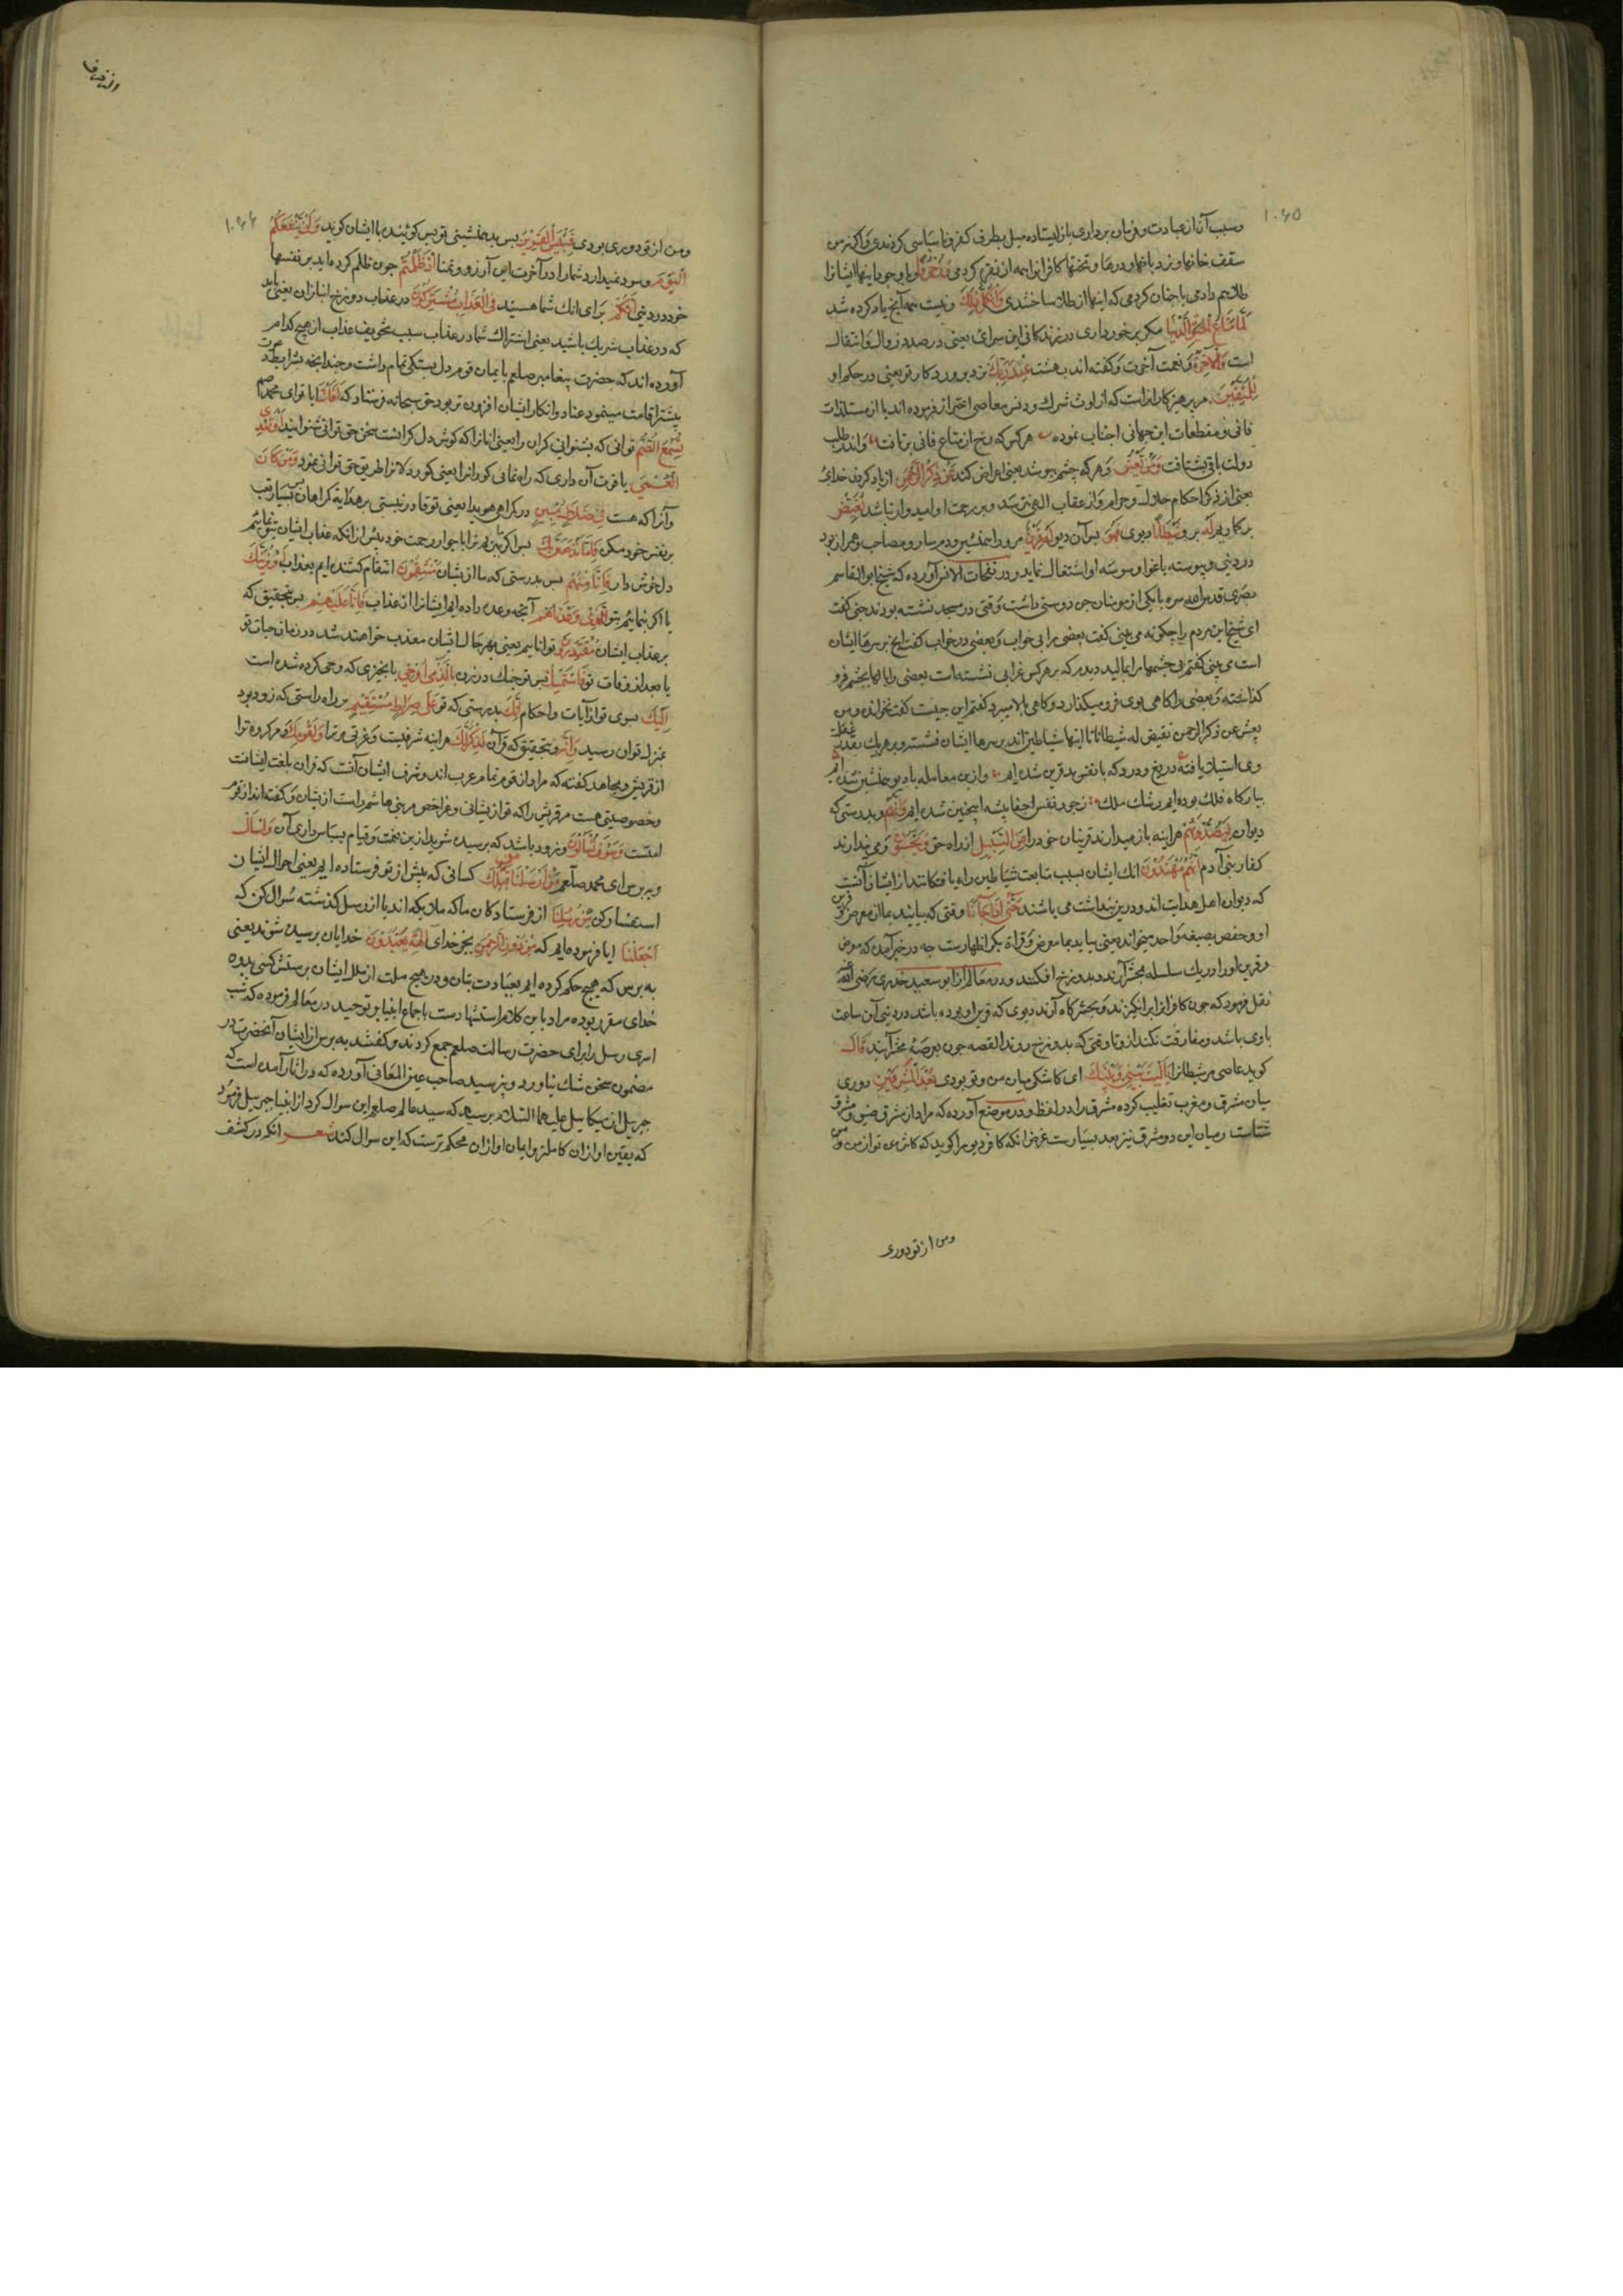 ۱۰۶۵
وسبب آن از عبادت و فرمان برداری باز ایستاده میل بطرف کفر و ناسپاسی کردندی و اکر نه من
سقف خانها و نردبانها و درها و تختها کافرانرا همه از نقره کردمی وَزُخْرُفًا و با وجود اینها ایشانرا
طلا هم دادمی یا چنان کردمی که اینها از طلا ساختندی وَاِنْ كُلُّ ذٰلِكَ و نیست همه آنچ یاد کرده شد
لَمَّا مَتَاعُ الْحَيٰوةِ الدُّنْيَا مکر برخورداری در زندکانی این سرای یعنی در صدد زوال و انتقال
است وَالْاٰخِرَةُ و نعمت آخرت و کفته اند بهشت عِنْدَ رَبِّكَ نزد پروردکار تو یعنی در حکم او
لِلْمُتَّقِينَ مر پرهیزکارانراست که از لوث شرک و دنس معاصی احتراز فرموده اند یا از مستلذات
فانی و منقطعات این جهانی اجتناب نموده هر کس که رخ از متاع فانی برتافت واندر طلب
دولت باقی بشتافت وَمَنْ يَعْشُ و هر که چشم بپوشد یعنی اعراض کند عَنْ ذِكْرِ الرَّحْمٰنِ از یاد کردن خدای
یعنی از ذکر احکام حلال و حرام و از عقاب الهی نترسد و بر رحمت او امیدوار نباشد نُقَيِّضْ
برکاریم لَهُ برو شَيْطَانًا دیوی فَهُوَ پس آن دیو لَهُ قَرِينٌ مر او را همنشین و دمساز و مصاحب و همراز بود
در دنیی و پیوسته باغوا و وسوسه او اشتغال نماید و در نفحات الانس آورده که شیخ ابو القاسم
مصری قدس الله سره با یکی از مومنان جن دوستی داشت وقتی در مسجد نشسته بودند جنی کفت
ای شیخ این مردم را چکونه می بینی کفت بعضی را بی خواب و بعضی در خواب کفت آنچ بر سرها ایشان
است می بینی کفتم نی چشمها مرا بمالید دیدم که بر هر کس غرابی نشسته است بعضی را بالها بچشم فرو
کذاشته و بعضی را کاهی بوی فرو میکذارد و کاهی بالا میبرد کفتم این چیست کفت نخوانده ومن
یعش عن ذکر الرحمن نقیض له شیطانا اینها شیاطین اند بر سرها ایشان نشسته و بر هر یک بقدر غفلت
وی استیلا یافته دریغ و درد که با نفس بد قرین شده ایم وازین معامله با دیو همنشین شده ایم
ببارکاه فلک بوده ایم رشک ملک زجور نفس جفاپیشه اینچنین شده ایم وَاِنَّهُمْ و بدرستی که
دیوان لَيَصُدُّونَهُمْ هراینه باز میدارند قرینان خود را عَنِ السَّبِيلِ از راه حق وَيَحْسَبُونَ و می پندارند
کفار بنی آدم اَنَّهُمْ مُهْتَدُونَ انک ایشان بسبب متابعت شیاطین راه یافتکانند از ایشان آنست
که دیوان اهل هدایت اند و درین پنداشت می باشند حَتّٰى اِذَا جَاءَنَا وقتی که بیایند بما
او و حفص بصیغه واحد میخوانند یعنی بیاید بما معرض و قراة بکر اظهارست چه در خبر آمده که معرض
و قرین او را در یک سلسله بمحشر آرند و بدوزخ افکنند و در معالم از ابو سعید خدری رضی الله عنه
نقل فرمود که چون کافرانرا برانکیزند و بحشرکاه آرند دیوی که قرین او بوده باشد در دنیی آن ساعت
با وی باشد و مفارقت نکند ازو تا وقتی که بدوزخ روند القصه چون بعرصه محشر آیند قَالَ
کوید عاصی مر شیطانرا يَا لَيْتَ بَيْنِي وَبَيْنَكَ ای کاشکی میان من و تو بودی بُعْدَ الْمَشْرِقَيْنِ دوری
میان مشرق و مغرب تغلیب کرده مشرق را در لفظ و در موضح آورده که مراد از مشرق صیف و مشرق
شتاست و میان این دو مشرق نیز بعد بسیارست غرض انکه کافر دیو را کوید که کاش من تو از من و من
ومن از تو دوری
۱۰۶۶
ومن از تو دوری بودی فَبِئْسَ الْقَرِينُ پس بد همنشینی تو پس کوینده با ایشان کوید وَلَنْ يَنْفَعَكُمُ
الْيَوْمَ و سود نمیدارد شما را در آخرت این آرزو و تمنا اِذْ ظَلَمْتُمْ چون ظلم کرده اید بر نفسها
خود در دنیی اَنَّكُمْ برای انک شما هستید فِي الْعَذَابِ مُشْتَرِكُونَ در عذاب دوزخ انبازان یعنی باید
که در عذاب شریک باشید یعنی اشتراک شما در عذاب سبب تخفیف عذاب از هیچ کدام
آورده اند که حضرت پیغامبر صلعم بایمان قوم دل بستکی تمام داشت و چندانچه شرایط دعوت
پیشتر اقامت مینمود عناد و انکار ایشان افزون تر بود حق سبحانه فرستاد که اَفَاَنْتَ ایا تو ای محمد
تُسْمِعُ الصُّمَّ توانی که بشنوانی کران را یعنی انانرا که کوش دل کرانست سخن حق توانی شنوانید اَوْ تَهْدِي
الْعُمْيَ یا قوت آن داری که راه نمائی کورانرا یعنی کوردلانرا طریق حق توانی نمود وَمَنْ كَانَ
وآنرا که هست فِي ضَلَالٍ مُبِينٍ در کمراهی هویدا یعنی تو قادر نیستی بر هدایة کمراهان پس بسیار تعب
بر نفس خود مکن فَاِمَّا نَذْهَبَنَّ بِكَ پس اکر ببریم ترا با جوار رحمت خود پیش از انکه عذاب ایشان بتو نمائیم
دل خوش دار فَاِنَّا مِنْهُمْ پس بدرستی که ما ازیشان مُنْتَقِمُونَ انتقام کشنده ایم بعذاب اَوْ نُرِيَنَّكَ
یا اکر بنمائیم بتو الَّذِي وَعَدْنَاهُمْ آنچه وعده داده ایم ایشانرا از عذاب فَاِنَّا عَلَيْهِمْ پس بتحقیق که
بر عذاب ایشان مُقْتَدِرُونَ توانائیم یعنی بهر حال ایشان معذب خواهند شد در زمان حیات تو
یا بعد از وفات تو فَاسْتَمْسِكْ پس تو چنک در زن بِالَّذِي اُوحِيَ بانچیزی که وحی کرده شده است
اِلَيْكَ بسوی تو از آیات و احکام اِنَّكَ بدرستی که تو عَلٰى صِرَاطٍ مُسْتَقِيمٍ بر راه راستی که زود بود
بمنزل توان رسید وَاِنَّهُ و بتحقیق که قرآن لَذِكْرٌ لَكَ هراینه شرفیست و عزتی مر ترا وَلِقَوْمِكَ و مر کروه ترا
از قریش و مجاهد کفته که مراد از قوم تمام عرب اند و شرف ایشان آنست که قران بلغت ایشانست
وخصوصیتی هست مر قریش را که تو ازیشانی و غیر اخص مر بنی هاشم راست ازیشان و کفته اند از قوم
امتست وَسَوْفَ تُسْاَلُونَ و زود باشد که پرسیده شوید ازین نعمت و قیام بسپاس داری آن وَاسْاَلْ
و بپرس ای محمد صلعم مَنْ اَرْسَلْنَا مِنْ قَبْلِكَ کسانی که پیش از تو فرستاده ایم یعنی احوال ایشان
استفسار کن مِنْ رُسُلِنَا از فرستادکان ما که ملایکه اند یا از رسل کذشته سوال کن که
اَجَعَلْنَا ایا فرموده ایم که مِنْ دُونِ الرَّحْمٰنِ بجز خدای اٰلِهَةً يُعْبَدُونَ خدایان پرسیده شوند یعنی
به پرس که هیچ حکم کرده ایم بعبادت بتان و در هیچ ملت از ملل ایشان پرستش کسی بدون
خدای مقرر بوده مراد باین کلام استشهادست باجماع انبیا بر توحید در معالم فرموده که شب
اسری رسل را برای حضرت رسالت صلعم جمع کردند و کفتند به پرس از ایشان آنحضرت در
مضمون سخن شک نیاورد و نپرسید صاحب عین المعانی آورده که در اثار آمده است که
جبریل از میکائیل علیهما السلام پرسید که سید عالم صلعم این سوال کرد از انبیا جبریل فرمود
که یقین او از ان کاملتر و ایمان او از ان محکم ترست که این سوال کند شعر انکه در کشف